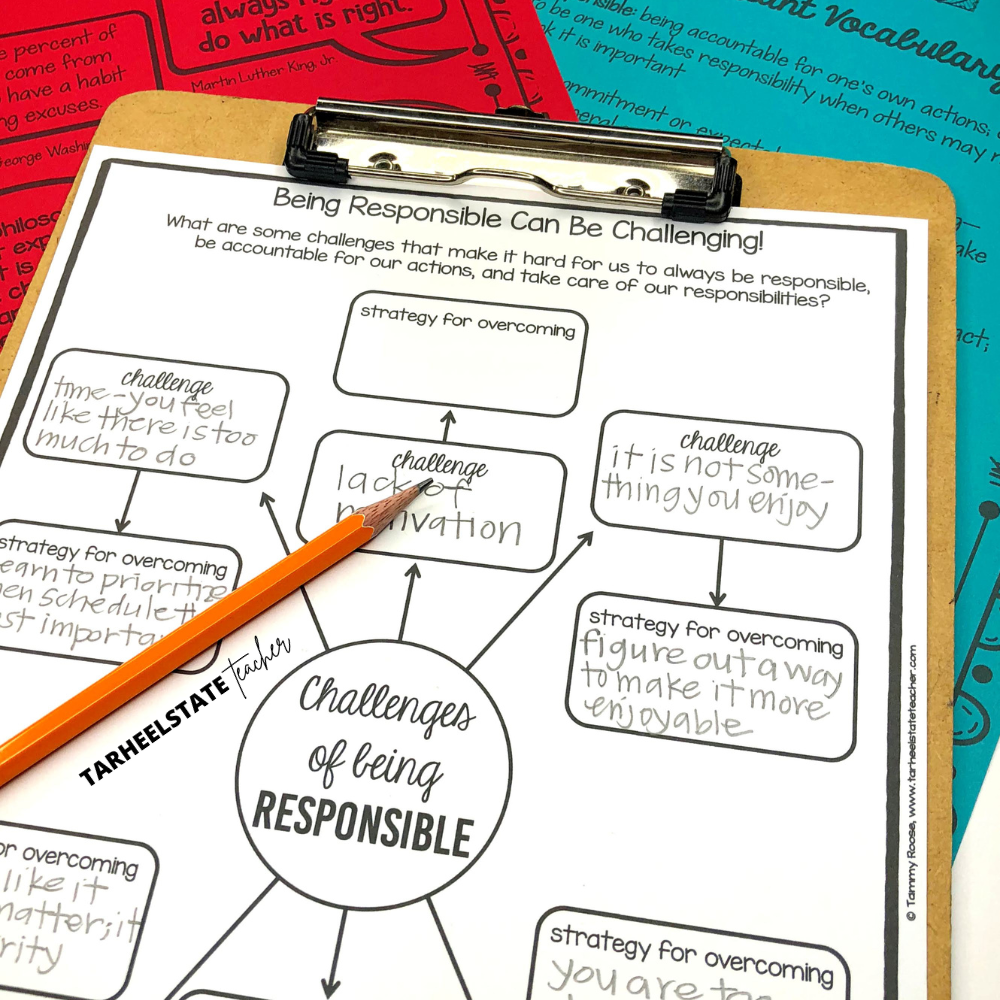 always
do what is right.
Martin Luther King, Jr.
e percent of
come from
have a habit
ng excuses.
George Washin
Vocabulary
being accountable for one's own actions;
be one who takes responsibility when others may
k it is important
ommitment or expect
neral
ake
act;
Being Responsible Can Be Challenging!
What are some challenges that make it hard for us to always be responsible,
be accountable for our actions, and take care of our responsibilities?
strategy for overcoming
challenge
time-you feel
like there is too
much to do
strategy for overcoming
earn to prioritize
en schedule t
st importa
challenge
lack of
vation
challenge
it is not some-
thing you enjoy
strategy for overcoming
figure out a way
to make it more
enjoyable
TARHEELSTATE teacher
Challenges
of being
RESPONSIBLE
or overcoming
like it
matter; it
rity
strategy for overcoming
you are
© Tammy Roose, www.tarheelstateteacher.com